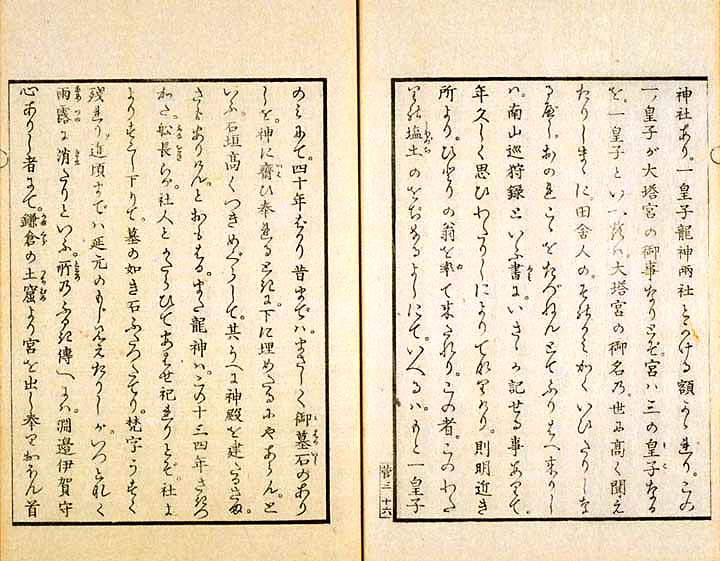 神社あり。一皇子龍神両社とかける額かゝれり。この
一ノ皇子が大塔宮の御事なりとぞ。宮ハ三の皇子なる
を。一皇子といへるハ。大塔宮の御名乃。世に高く聞え
たりしまゝに。田舎人の。そのかミかくいひたりしな
るべし。おのれこゝをたづねんとてふりはへ来りし
ハ。南山巡狩録といふ書に。いさゝか記せる事ありて。
年久しく思ひわたりしによりてなりけり。則明近き
所より。ひとりの翁を率て来たれり。この者。このわた
りの塩土のをぢなるよしにて。いへるハ。もと一皇子
三 十六
のミにて。四十年ばかり昔までハ。まさしく御墓石のあり
しを。神に齋ひ奉れるときに。下に埋めたるにやあらん。と
いふ。石垣高くつきめぐらして。其うへに神殿を建たるさま。
さもありけんとおもはる。また龍神ハ。この十三四年さきつ
かた。舩長らが。社人とかたらひてあはせ祀れりとぞ。社よ
りすこし下りて。墓の如き石ふたつたてり。梵字うすく
残れり。近頃までハ延元のもじ見えたりしが。いつとなく
雨露に消たりといふ。所乃ふるき傳へにハ。淵邊伊賀守
心ありし者にて。鎌倉の土窟より宮を出し奉り。おほん首